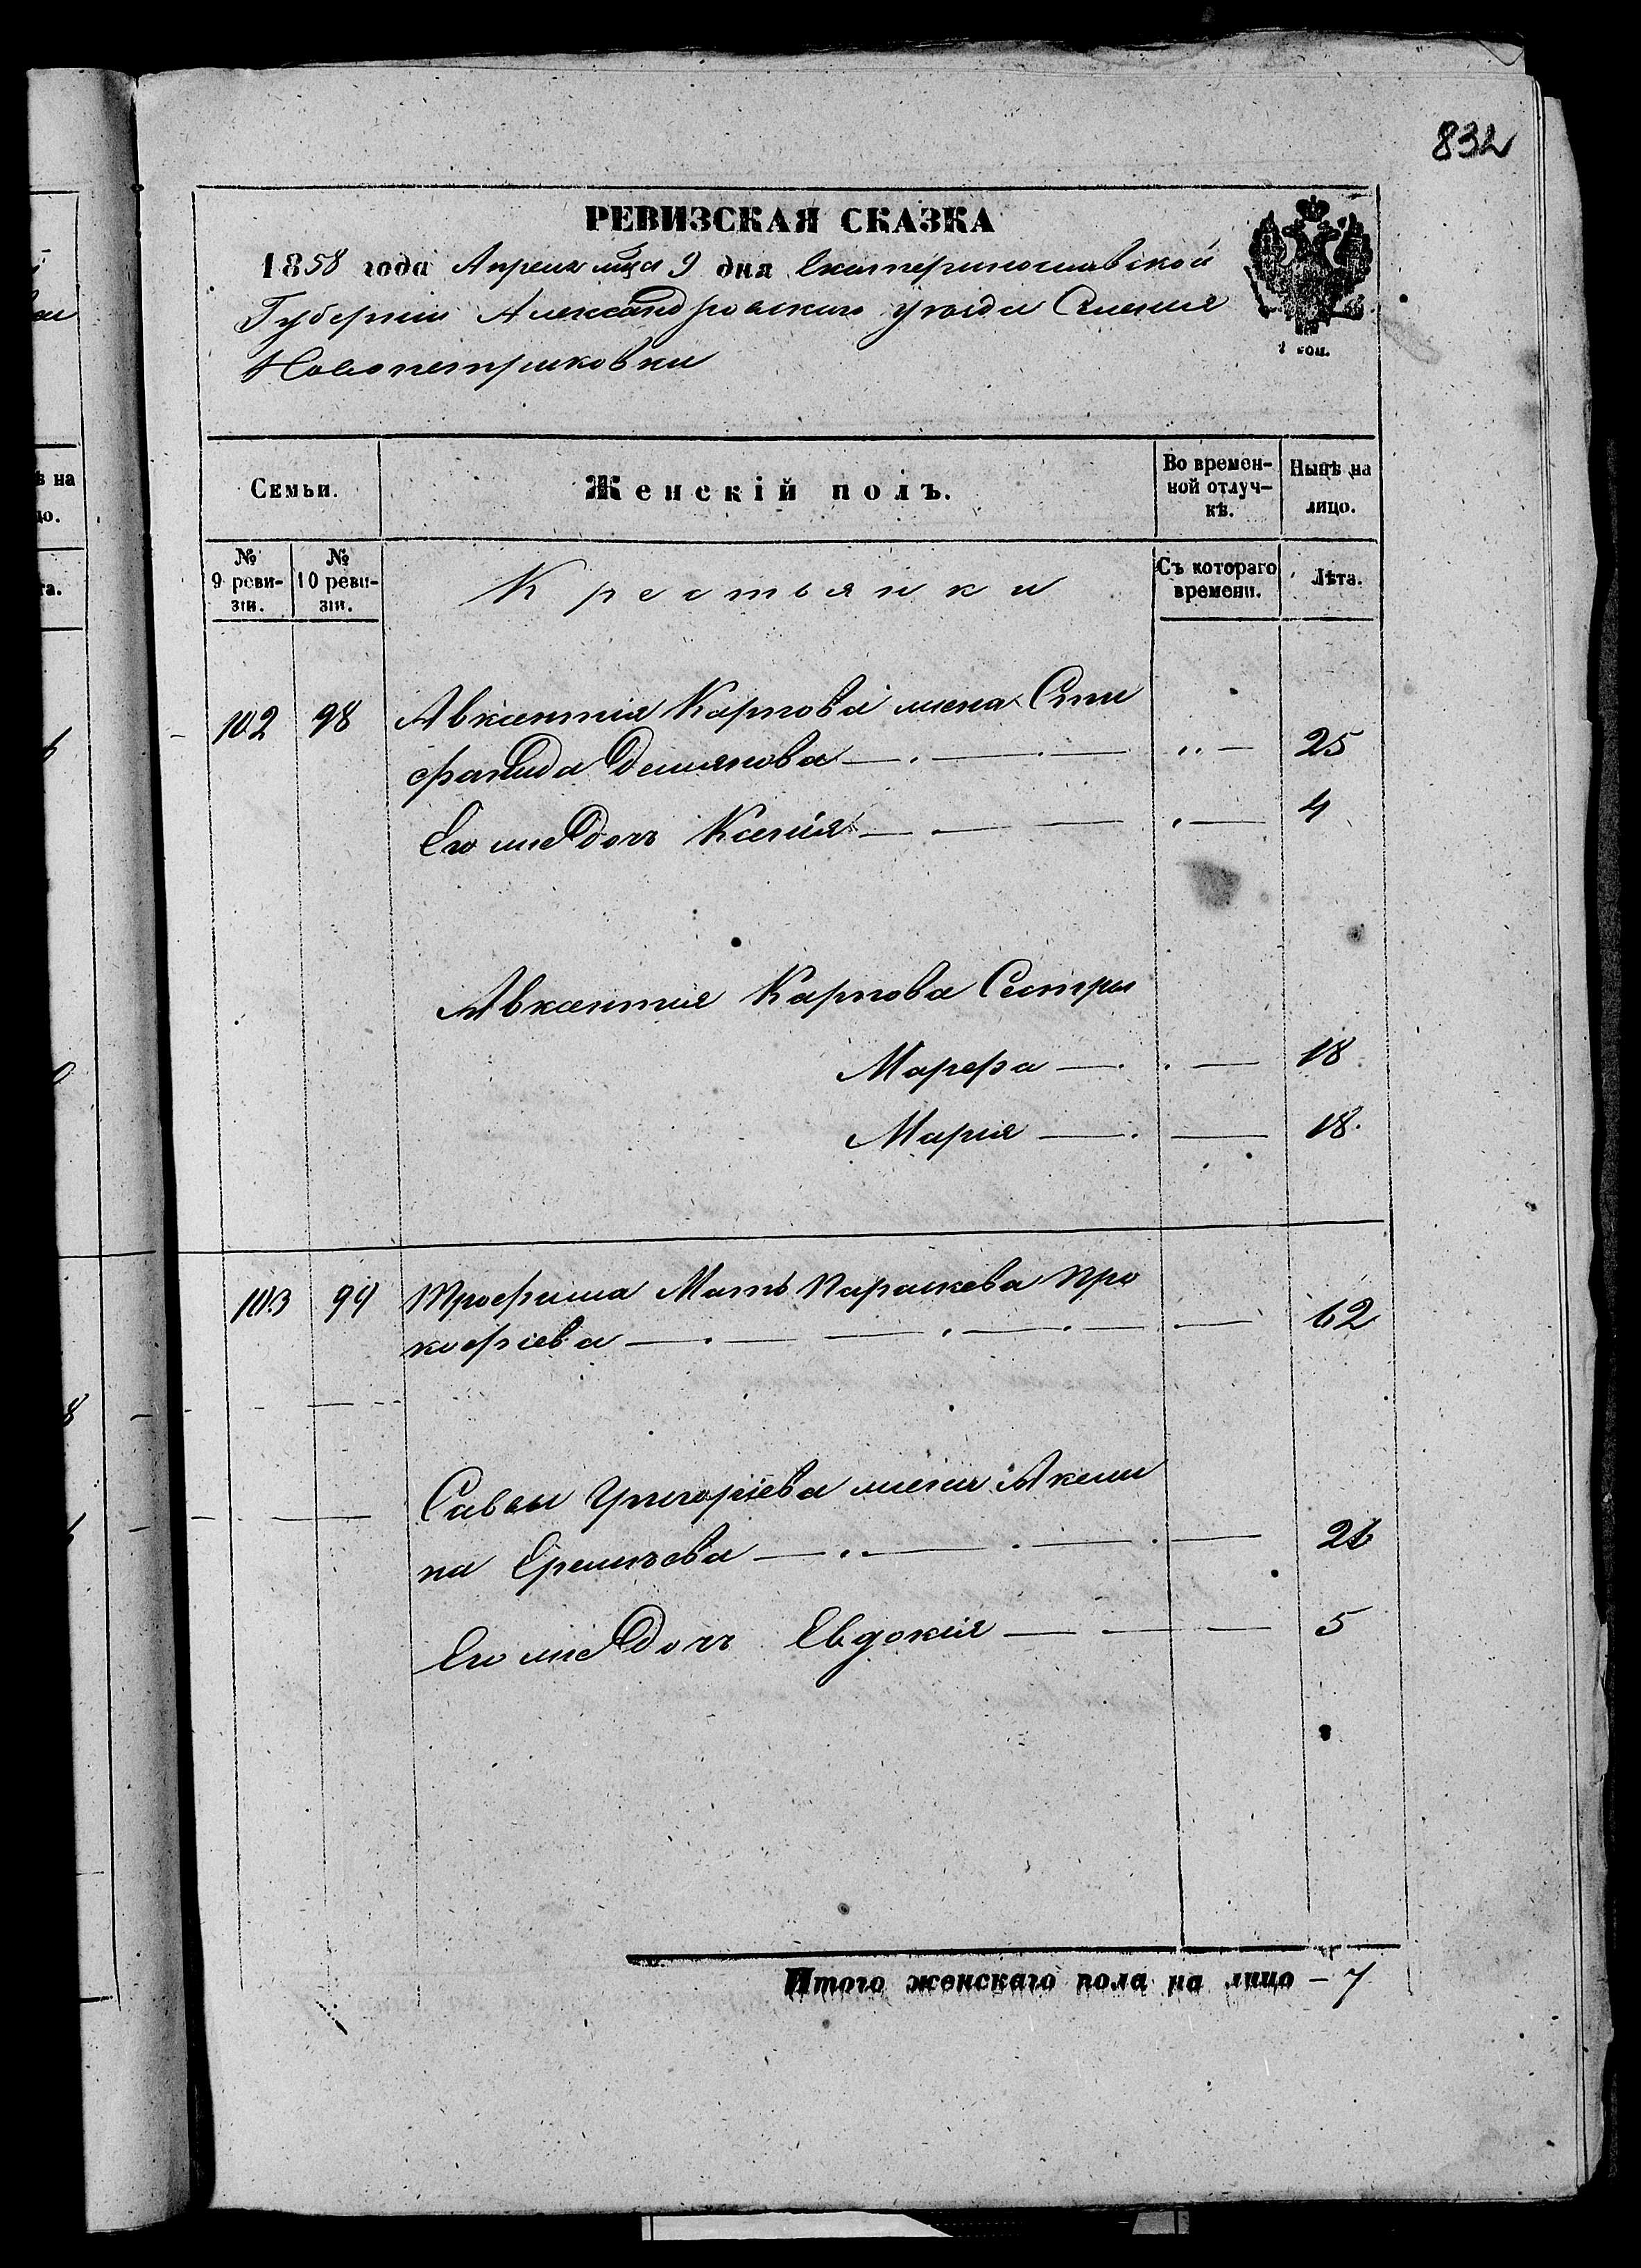 832
РЕВИЗСКАЯ СКАЗКА
1858 года Апреля мца 9 дня Екатеринославской
Губернии Александровскаго уезда Селения
Новопетриковки
2 коп.
Семьи.
Женскій полъ.
Во времен-
ной отлуч-
кѣ.
Нынѣ на
лицо.
№
9 реви-
зіи.
№
10 реви-
зіи.
Крестьянки
Съ котораго
времени.
Лѣта.
102 98 Авксентия Карпова жена Епи
странида Демянова 25
Его же дочь Ксенія 4
Авксентия Карпова Сестры
Марфа 18
Мария 18
103 99 Трофима Мать Параскева Про
кофіева 62
Савы Григоріева жена Акили
на Еремѣева 26
Его же дочь Евдокія 5
Итого женскаго пола на лицо – 7